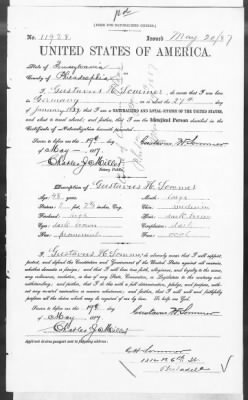 [FORM FOR NATURALIZED CITIZEN.]
No. 11928 Issued May 20/87
UNITED STATES OF AMERICA.
State of Pennsylvania
County of Philadelphia
I, Gustavus W. Sommer, was born in
Germany on the 27th day
of January 18 that I am a NATURALIZED AND LOYAL CITIZEN OF THE UNITED STATES,
and about to travel abroad; and further, that I am the Identical Person described in the
Certificate of Naturalization herewith presented.
Sworn to before me this 19th day
of May 1887. Gustavus W. Sommer
Charles J. Miller
Notary Public.
Description of Gustavus W. Sommer
Age: 48 years Mouth: large
Stature: 5 feet inches, Eng. Chin: medium
Forehead: high Hair: dark brown
Eyes: dark brown Complexion: dark
Nose: prominent Face: oval
I, Gustavus W. Sommer do solemnly swear that I will support,
protect, and defend the Constitution and Government of the United States against all enemies,
whether domestic or foreign; and that I will bear true faith, allegiance, and loyalty to the same,
any ordinance, resolution, or law of any State, Convention, or Legislature to the contrary not-
withstanding; and further, that I do this with a full determination, pledge, and purpose, without
any mental reservation or evasion whatsoever; and further, that I will well and faithfully
perform all the duties which may be required of me by law. So help me God.
Sworn to before me this 19th day
of May 1887 Gustavus W. Sommer
Charles J. Miller
Notary Public.
Applicant desires passport sent to following address:
G W Sommer
1312 N 6th St.
Philada